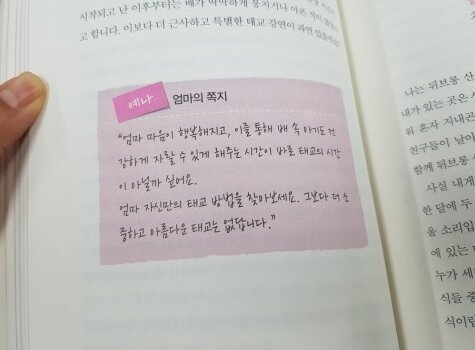 시작되고 난 이후부터는 배가
고 합니다. 이보다 더 근사하고 특별한 태교 강연이 과연 있을까요?
예나 엄마의 쪽지
“엄마 마음이 행복해지고, 이를 통해 배 속 아기도 건
강하게 자랄 수 있게 해주는 시간이 바로 태교의 시간
이 아닐까 싶어요.
엄마 자신만의 태교 방법을 찾아보세요. 그보다 더 소
중하고 아름다운 태교는 없답니다.”
나는 뒤브롱 산
내가 있는 곳은
워 혼자 지내곤
친구들이 날아
함께 뒤브롱
사실 내게
한 달에 두
울 소리입
에 있는
누가 세
식들 중
식이립